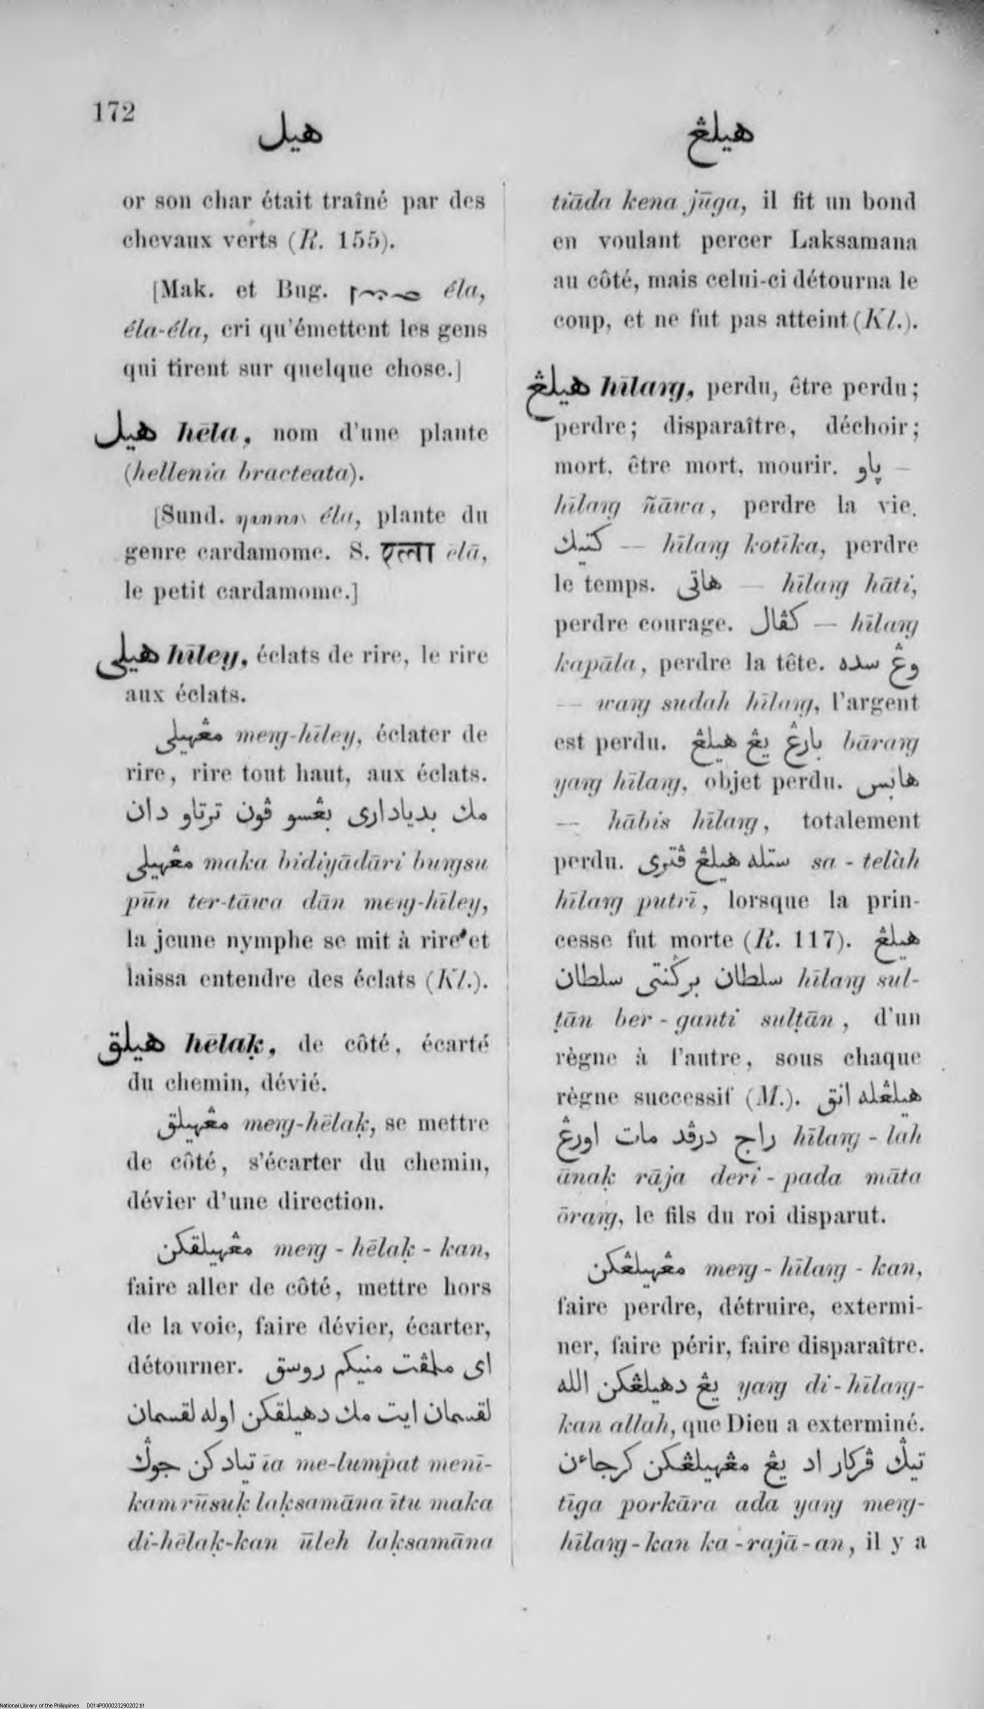 172
هيل
هيلڠ
or son char était traîné par des
chevaux verts (R. 155).
[Mak. et Bug. éla,
éla-éla, cri qu'émettent les gens
qui tirent sur quelque chose.]
هيل hēla, nom d'une plante
(hellenia bracteata).
[Sund. éla, plante du
genre cardamome. S. एला ēlā,
le petit cardamome.]
هيلى hīley, éclats de rire, le rire
aux éclats.
مڠهيلى meng-hīley, éclater de
rire, rire tout haut, aux éclats.
مك بدياداري بڠسو ڤون ترتاو دان
مڠهيلى maka bidiyādāri bungsu
pūn ter-tāwa dān meng-hīley,
la jeune nymphe se mit à rire et
laissa entendre des éclats (Kl.).
هيلق hēlaḳ, de côté, écarté
du chemin, dévié.
مڠهيلق meng-hēlaḳ, se mettre
de côté, s'écarter du chemin,
dévier d'une direction.
مڠهيلقكن meng-hēlaḳ-kan,
faire aller de côté, mettre hors
de la voie, faire dévier, écarter,
détourner. اى ملمڤت منيكم روسق
لقسمان ايت مك دهيلقكن اوله لقسمان
تياد كن جوݢ īa me-lumpat menī-
kam rūsuḳ laḳsamāna ītu maka
di-hēlaḳ-kan ūleh laḳsamāna
tiāda kena jūga, il fit un bond
en voulant percer Laksamana
au côté, mais celui-ci détourna le
coup, et ne fut pas atteint (Kl.).
هيلڠ hīlang, perdu, être perdu;
perdre; disparaître, déchoir;
mort, être mort, mourir. ڽاو —
hīlang ñāwa, perdre la vie.
كتيك — hīlang kotīka, perdre
le temps. هاتى — hīlang hāti,
perdre courage. كڤال — hīlang
kapāla, perdre la tête. وڠ سده
— wang sudah hīlang, l'argent
est perdu. بارڠ يڠ هيلڠ bārang
yang hīlang, objet perdu. هابس
— hābis hīlang, totalement
perdu. ستله هيلڠ ڤترى sa-telàh
hīlang putrī, lorsque la prin-
cesse fut morte (R. 117). هيلڠ
سلطان برݢنتى سلطان hīlang sul-
ṭān ber-ganti sulṭān, d'un
règne à l'autre, sous chaque
règne successif (M.). هيلڠله انق
راج درڤد مات اورڠ hīlang-lah
ānaḳ rāja deri-pada māta
ōrang, le fils du roi disparut.
مڠهيلڠكن meng-hīlang-kan,
faire perdre, détruire, extermi-
ner, faire périr, faire disparaître.
يڠ دهيلڠكن الله yang di-hīlang-
kan allah, que Dieu a exterminé.
تيݢ ڤركار اد يڠ مڠهيلڠكن كرجاءن
tīga porkāra ada yang meng-
hīlang-kan ka-rajā-an, il y a
National Library of the Philippines